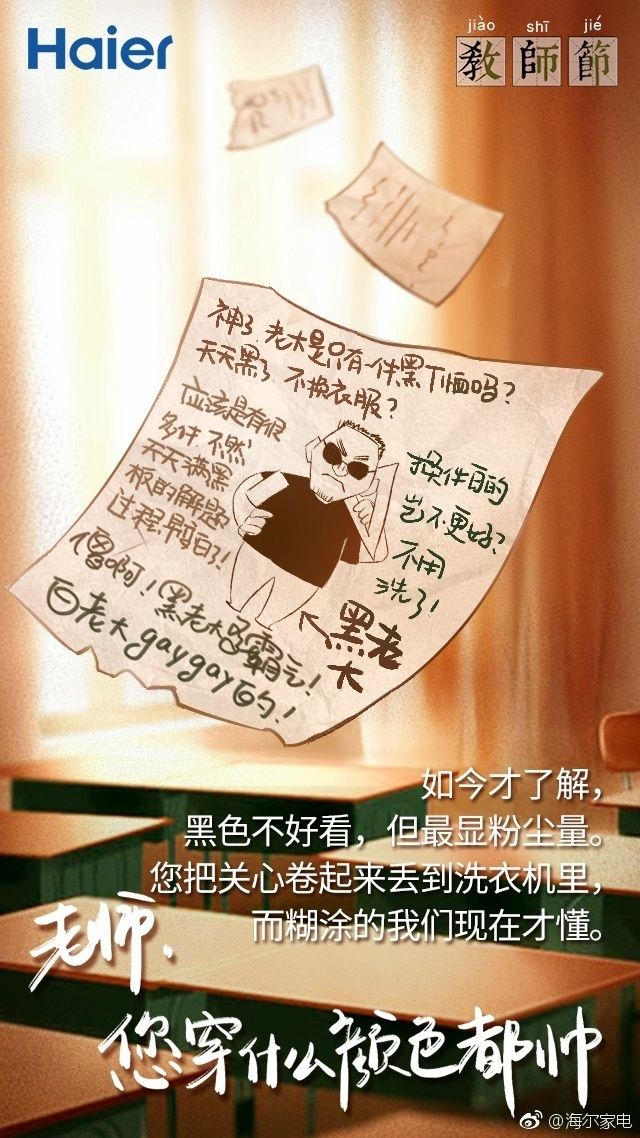 Haier
jiào shī jié
教師節
神了，老大是只有一件黑T恤吗？
天天黑了，不换衣服？
应该是有很
多件，不然
天天满黑
板的解题
过程，早白了！
换件白的
岂不更好？
不用
洗了！
傻啊！黑老大多霸气！
白老大gaygay的！
黑老
大
如今才了解，
黑色不好看，但最显粉尘量。
您把关心卷起来丢到洗衣机里，
而糊涂的我们现在才懂。
老师，
您穿什么颜色都帅
@海尔家电